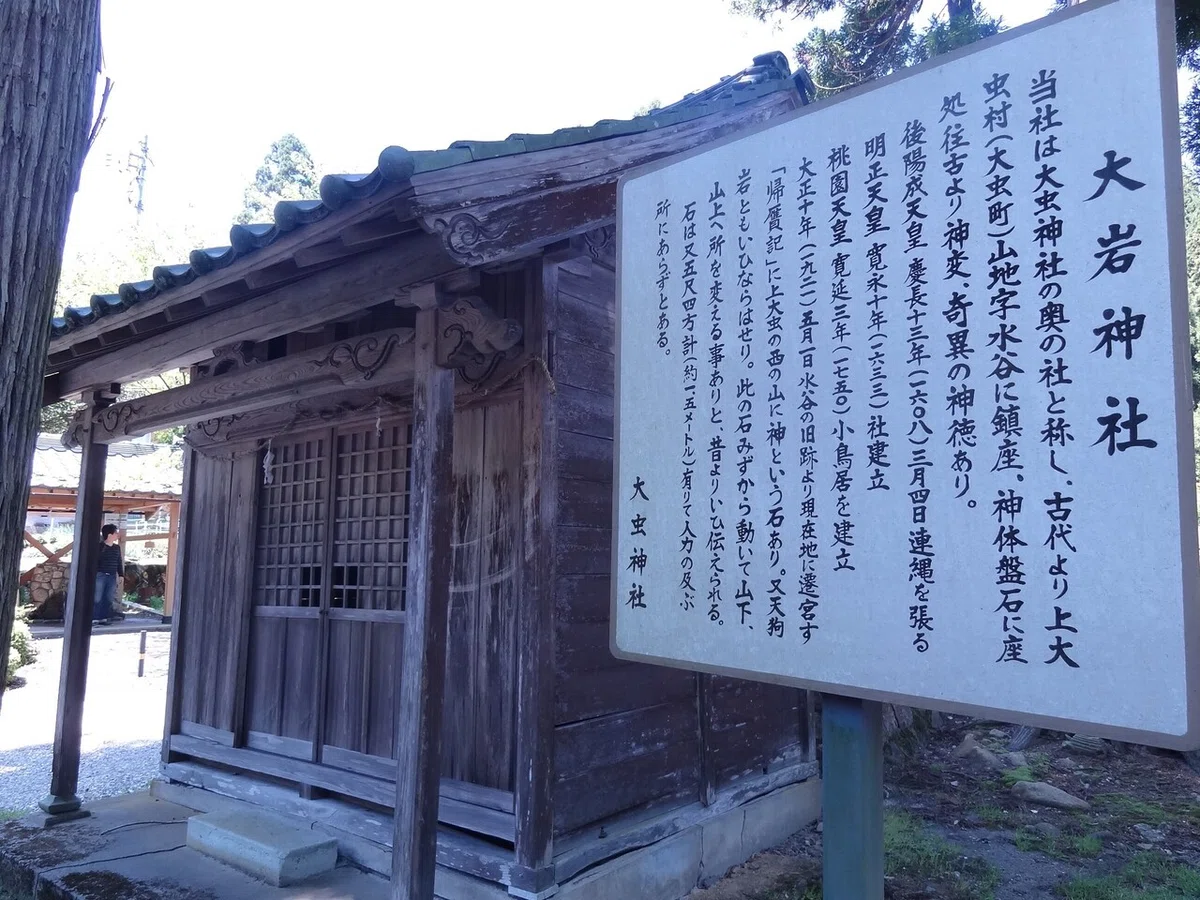 大岩神社
当社は大虫神社の奥の社と称し、古代より上大
虫村(大虫町)山地字水谷に鎮座、神体盤石に座
処往古より神変、奇異の神徳あり。
後陽成天皇 慶長十三年(一六〇八)三月四日連縄を張る
明正天皇 寛永十年(一六三三)社建立
桃園天皇 寛延三年(一七五〇)小鳥居を建立
大正十年(一九二一)五月一日水谷の旧跡より現在地に遷宮す
「帰贋記」に上大虫の西の山に神という石あり。又天狗
岩ともいひならはせり。此の石みずから動いて山下、
山上へ所を変える事ありと、昔よりいひ伝えられる。
石は又五尺四方計(約一.五メートル)有りて人力の及ぶ
所にあらずとある。
大虫神社